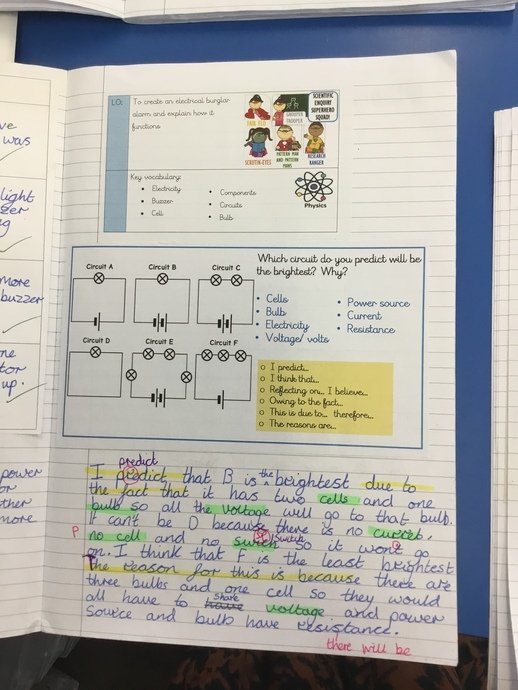 ve
was
light
zer
ng
more
buzzer
ne
tor
up.
power
or
ther
more
LO:
To create an electrical burglar
alarm and explain how it
functions
FAIR FLO
GROUPER
TROOPER
SCIENTIFIC
ENQUIRY
SUPERHERO
SQUAD!
SCRUTIN-EYES
PATTERN MAN
AND PATTERN
PAWS
RESEARCH
RANGER
Key vocabulary:
• Electricity
• Buzzer
• Cell
• Components
• Circuits
• Bulb
Physics
Circuit A
Circuit B
Circuit C
Circuit D
Circuit E
Circuit F
Which circuit do you predict will be
the brightest? Why?
• Cells
• Bulb
• Electricity
• Voltage/ volts
• Power source
• Current
• Resistance
o I predict...
o I think that...
o Reflecting on... I believe...
o Owing to the fact...
o This is due to... therefore...
o The reasons are...
predict
I predict, that B is the brightest due to
the fact that it has two cells and one
bulb so all the voltage will go to that bulb.
It can't be D because there is no curret,
P no cell and no swich sp switch so it wont go
on. I think that F is the least brightest
the reason for this is because there are
three bulbs and one cell so they would
all have to have share voltage and power
source and bulb have resistance.
there will be